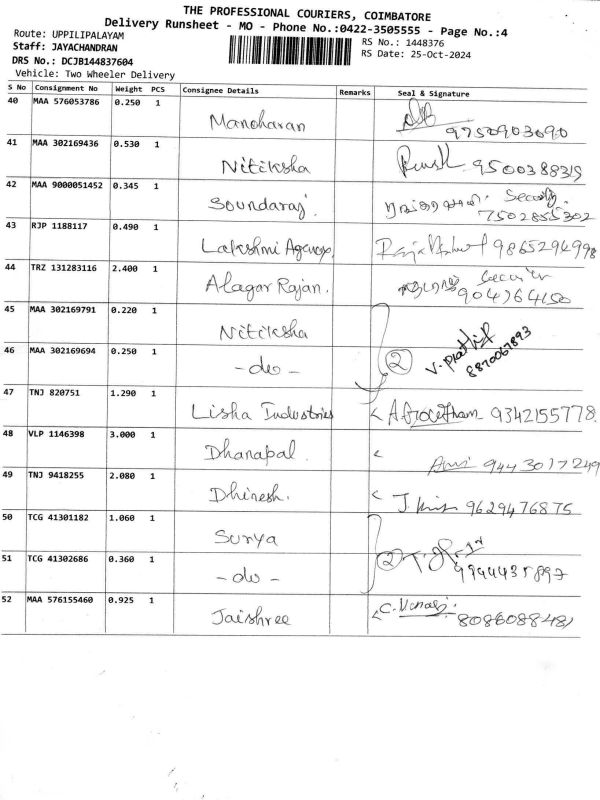 THE PROFESSIONAL COURIERS, COIMBATORE
Delivery Runsheet - MO - Phone No.:0422-3505555 - Page No.:4
Route: UPPILIPALAYAM
Staff: JAYACHANDRAN
DRS No.: DCJB144837604
Vehicle: Two Wheeler Delivery
RS No.: 1448376
RS Date: 25-Oct-2024
S No Consignment No Weight PCS Consignee Details Remarks Seal & Signature
40 MAA 576053786 0.250 1
Manoharan 9750903090
41 MAA 302169436 0.530 1
Nitiksha 9500388319
42 MAA 9000051452 0.345 1
Soundaraj. Security.
7502855302
43 RJP 1188117 0.490 1
Lakshmi Agency. 9865294998
44 TRZ 131283116 2.400 1
Alagar Rajan. 9047641150
45 MAA 302169791 0.220 1
Nitiksha
46 MAA 302169694 0.250 1
-do- 2 V. Prathip
8870067893
47 TNJ 820751 1.290 1
Lisha Industries 9342155778.
48 VLP 1146398 3.000 1
Dhanapal. 9443017249
49 TNJ 9418255 2.080 1
Dhinesh. 9629476875
50 TCG 41301182 1.060 1
Surya
51 TCG 41302686 0.360 1
-do- 2 9944435897
52 MAA 576155460 0.925 1
Jaishree 8086088481